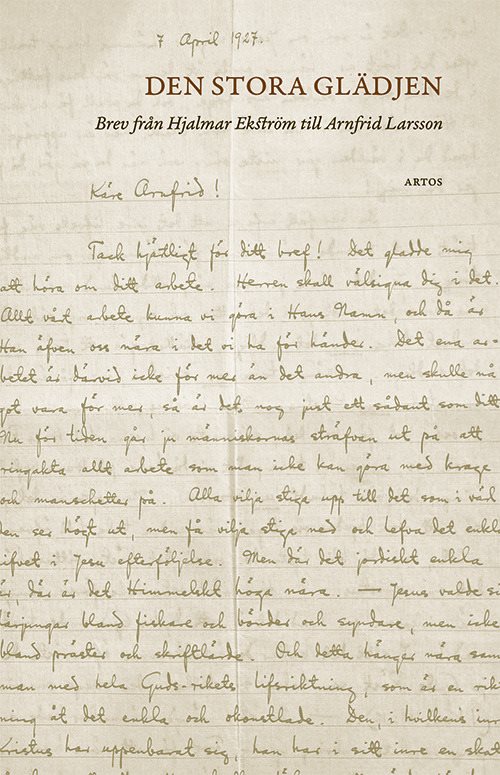 7 April 1927.
DEN STORA GLÄDJEN
Brev från Hjalmar Ekström till Arnfrid Larsson
ARTOS
Käre Arnfrid!
Tack hjätligt för ditt bref! Det gladde mig
att höra om ditt arbete. Herren skall välsigna dig i det.
Allt vårt arbete kunna vi göra i Hans Namn, och då är
Han äfven oss nära i det vi ha för händer. Det ena ar-
betet är därvid icke för mer än det andra, men skulle nå
got vara för mer, så är det nog just ett sådant som ditt
Nu för tiden går ju människornas sträfvan ut på att
ringakta allt arbete som man icke kan göra med krage
och manschetter på. Alla vilja stiga upp till det som i värl
den ser högt ut, men få vilja stiga ned och lefva det enkla
lifvet i Jesu efterföljelse. Men där det jordiskt enkla
är, där är det Himmelskt höga nära. — Jesus valde si
lärjungar bland fiskare och bönder och syndare, men icke
bland präster och skriftlärde. Och detta hänger nära sam
man med hela Guds-rikets lifsriktning, som är en rikt
ning åt det enkla och okonstlade. Den, i hvilkens inr
Kristus har uppenbarat sig, han har i sitt inre en skat